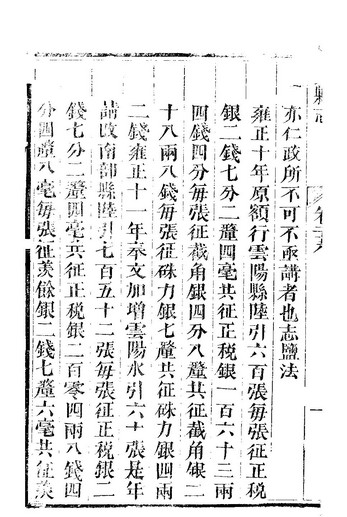 縣志 卷
亦仁政所不可不亟講者也志鹽法
雍正十年原額行雲陽縣陸引六百張每張征正稅
銀二錢七分二釐四毫共征正稅銀一百六十三兩
四錢四分每張征截角銀四分八釐共征截角銀二
十八兩八錢每張征硃力銀七釐共征硃力銀四兩
二錢雍正十一年奉文加增雲陽水引六十張是年
請改南部縣陸引七百五十二張每張征正稅銀二
錢七分二釐四毫共征正稅銀二百零四兩八錢四
分四釐八毫每張征羨餘銀二錢七釐六毫共征羨